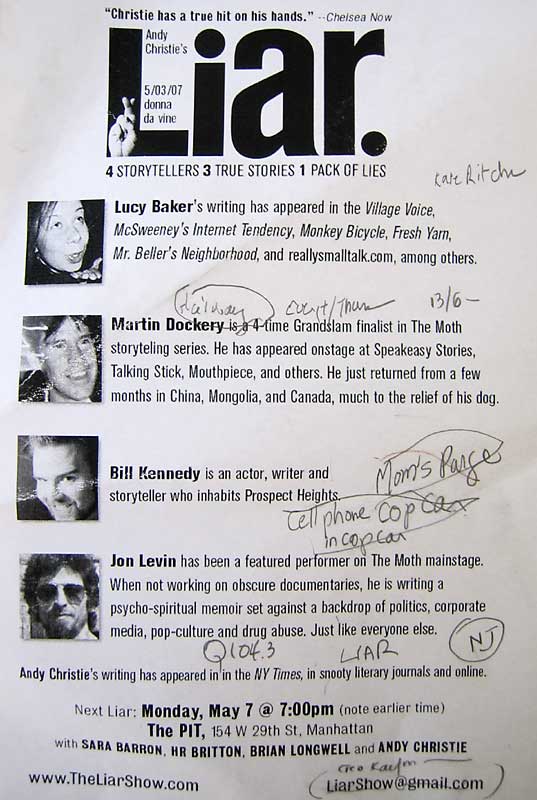 "Christie has a true hit on his hands." --Chelsea Now
Andy
Christie's
Liar.
5/03/07
donna
da vine
4 STORYTELLERS 3 TRUE STORIES 1 PACK OF LIES
Lucy Baker's writing has appeared in the Village Voice,
McSweeney's Internet Tendency, Monkey Bicycle, Fresh Yarn,
Mr. Beller's Neighborhood, and reallysmalltalk.com, among others.
13/6-
Martin Dockery is a 4-time Grandslam finalist in The Moth
storyteling series. He has appeared onstage at Speakeasy Stories,
Talking Stick, Mouthpiece, and others. He just returned from a few
months in China, Mongolia, and Canada, much to the relief of his dog.
Mom's
Bill Kennedy is an actor, writer and
storyteller who inhabits Prospect Heights.
Cell phone cop car
in cop car
Jon Levin has been a featured performer on The Moth mainstage.
When not working on obscure documentaries, he is writing a
psycho-spiritual memoir set against a backdrop of politics, corporate
media, pop-culture and drug abuse. Just like everyone else.
Q104.3 LIAR NJ
Andy Christie's writing has appeared in in the NY Times, in snooty literary journals and online.
Next Liar: Monday, May 7 @ 7:00pm (note earlier time)
The PIT, 154 W 29th St, Manhattan
with SARA BARRON, HR BRITTON, BRIAN LONGWELL and ANDY CHRISTIE
www.TheLiarShow.com
LiarShow@gmail.com